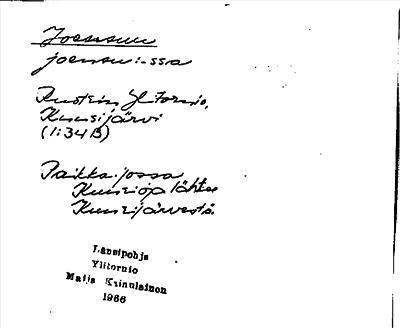 Joensuu
joensu:-ssa
Ruotsin Ylitornio,
Kuusijärvi
(1:34 B)
Paikka jossa
Kuusioja lähtee
Kuusijärvestä.
Länsipohja
Ylitornio
Maija Kainulainen
1966